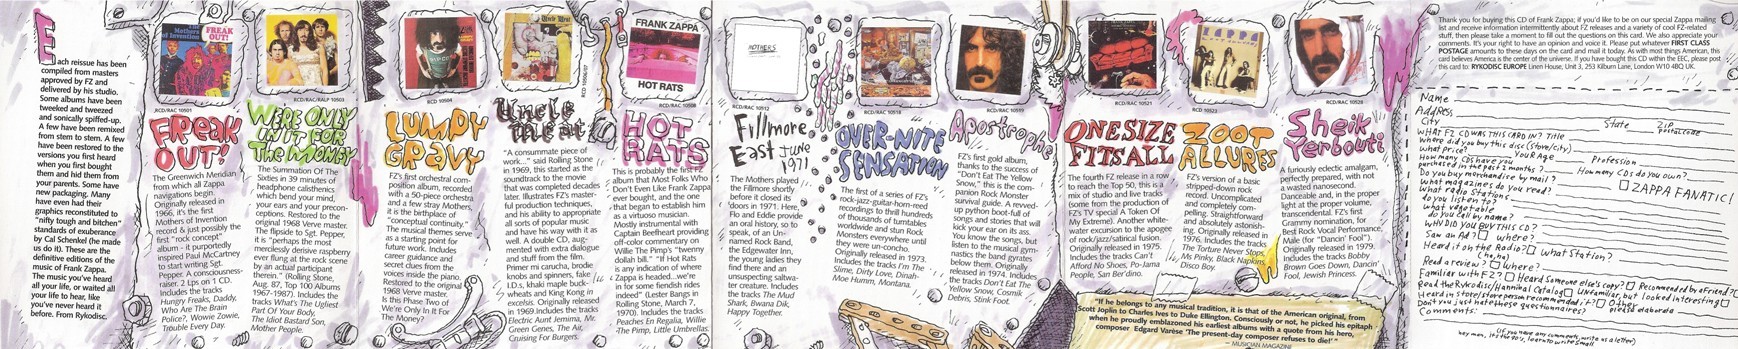 E
ach reissue has been
compiled from masters
approved by FZ and
delivered by his studio.
Some albums have been
tweeked and tweezed
and sonically spiffed-up.
A few have been remixed
from stem to stern. A few
have been restored to the
versions you first heard
when you first bought
them and hid them from
your parents. Some have
new packaging. Many
have even had their
graphics reconstituted to
"nifty tough and bitchen"
standards of exuberance
by Cal Schenkel (he made
us do it). These are the
definitive editions of the
music of Frank Zappa.
The music you've heard
all your life, or waited all
your life to hear, like
you've never heard it
before. From Rykodisc.
RCD/RAC 10501
FREAK
OUT!
The Greenwich Meridian
from which all Zappa
navigations begin.
Originally released in
1966, it's the first
Mothers of Invention
record & just possibly the
first "rock concept"
album - it purportedly
inspired Paul McCartney
to start writing Sgt.
Pepper. A consciousness-
raiser, 2 Lps on 1 CD.
Includes the tracks
Hungry Freaks, Daddy,
Who Are The Brain
Police?, Wowie Zowie,
Trouble Every Day.
RCD/RAC/RALP 10503
WERE ONLY
IN IT FOR
The MONEY
The Summation Of The
Sixties in 39 minutes of
headphone calisthenics
which bend your mind,
your ears and your precon-
ceptions. Restored to the
original 1968 Verve master.
The flipside to Sgt. Pepper,
it is "perhaps the most
mercilessly derisive raspberry
ever flung at the rock scene
by an actual participant
therein." (Rolling Stone,
Aug. 87, Top 100 Albums
1967-1987). Includes the
tracks What's The Ugliest
Part Of Your Body,
The Idiot Bastard Son,
Mother People.
RCD 10504
LUMPY
GRAVY
FZ's first orchestral com-
position album, recorded
with a 50-piece orchestra
and a few stray Mothers,
it is the birthplace of
"conceptual continuity".
The musical themes serve
as a starting point for
future work. Includes
career guidance and
secret clues from the
voices inside the piano.
Restored to the original
1968 Verve master.
Is this Phase Two of
We're Only In It For
The Money?
RCD 10506/07
Uncle
meat
"A consummate piece of
work..." said Rolling Stone
in 1969, this started as the
soundtrack to the movie
that was completed decades
later. Illustrates FZ's master-
ful production techniques,
and his ability to appropriate
all sorts of popular music
and have his way with it as
well. A double CD, aug-
mented with extra dialogue
and stuff from the film.
Primer mi carucha, brodie
knobs and spinners, fake
I.D.s, khaki maple buck-
wheats and King Kong in
excelsis. Originally released
in 1969.Includes the tracks
Electric Aunt Jemima, Mr.
Green Genes, The Air,
Cruising For Burgers.
FRANK ZAPPA
HOT RATS
RCD/RAC 10508
HOT
RATS
This is probably the first FZ
album that Most Folks Who
Don't Even Like Frank Zappa
ever bought, and the one
that began to establish him
as a virtuoso musician.
Mostly instrumental with
Captain Beefheart providing
off-color commentary on
Willie The Pimp's "twenny
dollah bill." "If Hot Rats
is any indication of where
Zappa is headed...we're
in for some fiendish rides
indeed" (Lester Bangs in
Rolling Stone, March 7,
1970). Includes the tracks
Peaches En Regalia, Willie
The Pimp, Little Umbrellas.
MOTHERS
RCD/RAC 10512
Fillmore
East June
1971
The Mothers played
the Fillmore shortly
before it closed its
'doors in 1971. Here,
Flo and Eddie provide
an oral history, so to
speak, of an Un-
named Rock Band,
the Edgewater Inn,
the young ladies they
find there and an
unsuspecting saltwa-
ter creature. Includes
the tracks The Mud
Shark, Bwana Dik,
Happy Together.
RCD/RAC 10518
OVER-NITE
SENSATION
The first of a series of FZ's
rock-jazz-guitar-horn-reed
recordings to thrill hundreds
of thousands of turntables
worldwide and stun Rock
Monsters Universale until
they were un-concho.
Originally released in 1973.
Includes the tracks I'm The
Slime, Dirty Love, Dinah-
Moe Humm, Montana.
RCD/RAC 10519
Apostrophe
FZ's first gold album,
thanks to the success of
"Don't Eat The Yellow
Snow," this is the com-
panion Rock Monster
survival guide. A revved
up python boot-full of
songs and stories that will
kick your ear on its ass.
You know the songs, but
listen to the musical gym-
nastics the band gyrates
below them. Originally
released in 1974. Includes
the tracks Don't Eat The
Yellow Snow, Cosmik
Debris, Stink Foot.
RCD/RAC 10521
ONE SIZE
FITS ALL
The fourth FZ release in a row
to reach the Top 50, this is a
mix of studio and live tracks
(some from the production of
FZ's TV special A Token Of
My Extreme). Another white-
water excursion to the apogee
of rock/jazz/satirical fusion.
Originally released in 1975.
Includes the tracks Can't
Afford No Shoes, Po-Jama
People, San Ber'dino.
"If he belongs to any musical tradition, it is that of the American original, from
Scott Joplin to Charles Ives to Duke Ellington. Consciously or not, he picked his epitaph
when he proudly emblazoned his earliest albums with a quote from his hero,
composer Edgard Varèse 'The present-day composer refuses to die!'"
— MUSICIAN MAGAZINE
ZAPPA
RCD 10523
ZOOT
ALLURES
FZ's version of a basic
stripped-down rock
record. Uncomplicated
and completely com-
pelling. Straightforward
and absolutely astonish-
ing. Originally released in
1976. Includes the tracks
The Torture Never Stops,
Ms Pinky, Black Napkins,
Disco Boy.
RCD/RAC 10528
Sheik
Yerbouti
A furiously eclectic amalgam,
perfected perversity, with not
a wasted nanosecond.
Danceable and, in the proper
light at the proper volume,
transcendental. FZ's first
Grammy nomination, for
Best Rock Vocal Performance,
Male (for "Dancin' Fool").
Originally released in 1979.
Includes the tracks Bobby
Brown Goes Down, Dancin'
Fool, Jewish Princess.
Thank you for buying this CD of Frank Zappa; if you'd like to be on our special Zappa mailing
list and receive information intermittently about FZ releases and a variety of cool FZ-related
stuff, then please take a moment to fill out the questions on this card. We also appreciate your
comments. It's your right to have an opinion and voice it. Please put whatever FIRST CLASS
POSTAGE amounts to these days on the card and mail it today. As with most things American, this
card believes America is the center of the universe. If you have bought this CD within the EEC, please post
this card to: RYKODISC EUROPE Linen House, Unit 3, 253 Kilburn Lane, London W10 4BQ UK.
Name
Address
City State Zip postal code
WHAT FZ CD WAS THIS CARD IN? Title
Where did you buy this disc (store/city)
What price? Your Age Profession
How many CDs have you purchased in the past 2 months? How many CDs do you own?
Do you buy merchandise by mail? ZAPPA FANATIC!
What magazines do you read?
What radio stations do you listen to?
What vegetable do you call by name?
WHY DID YOU BUY THIS CD?
Saw an Ad? Where?
Heard it on the Radio? What Station?
(ha, ha)
Read a review? Where?
Familiar with FZ? Heard Someone else's copy? Recommended by a Friend?
Read the Rykodisc/Hannibal Catalog Unfamiliar, but looked interesting
Heard in Store/store person recommended it? Other
Don't you just hate these questionnaires? please elaborate
Comments:
(if you have any comments, write us a letter)
hey man, it's the 90's, learn to write small